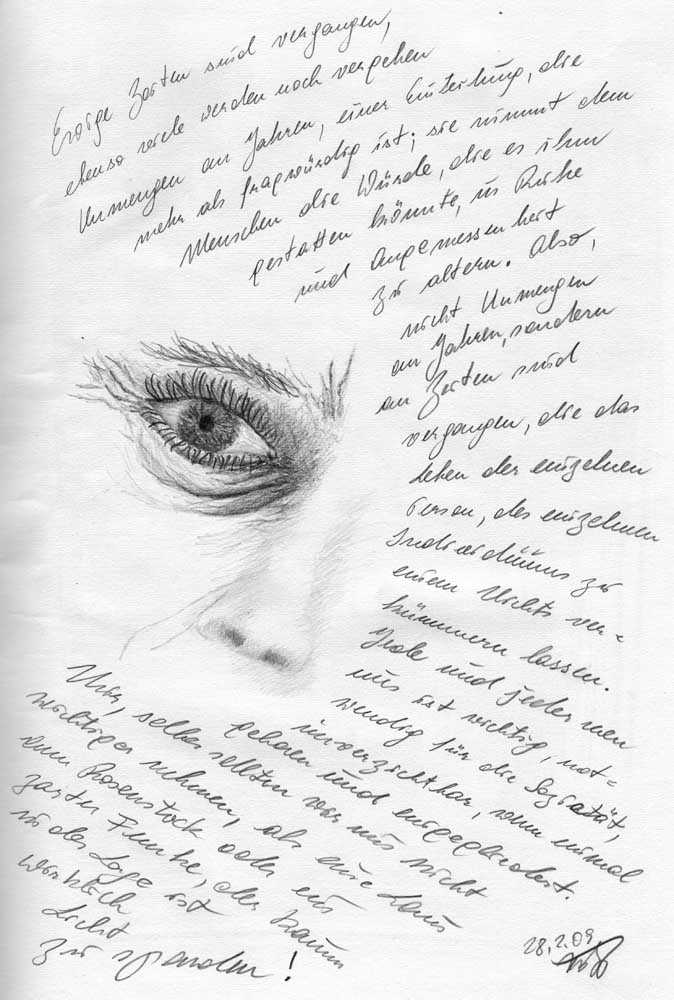 Ewige Zeiten sind vergangen,
ebenso viele werden noch vergehen
Unmengen an Jahren, einer Einteilung, die
mehr als fragwürdig ist; sie nimmt dem
Menschen die Würde, die es ihm
gestatten könnte, in Ruhe
und Angemessenheit
zu altern. Also,
nicht Unmengen
an Jahren, sondern
an Zeiten sind
vergangen, die das
Leben der einzelnen
Person, des einzelnen
Individuums zu
einem Nichts ver-
kümmern lassen.
Jede und jeder von
uns ist wichtig, not-
wendig für die Sozietät,
unverzichtbar, wenn einmal
geboren und eingegliedert.
Nur, selbst sollten wir uns nicht
wichtiger nehmen, als eine Laus
am Rosenstock oder ein
zarter Funke, der kaum
in der Lage ist
wirklich
Licht
zu spenden!
28.2.09